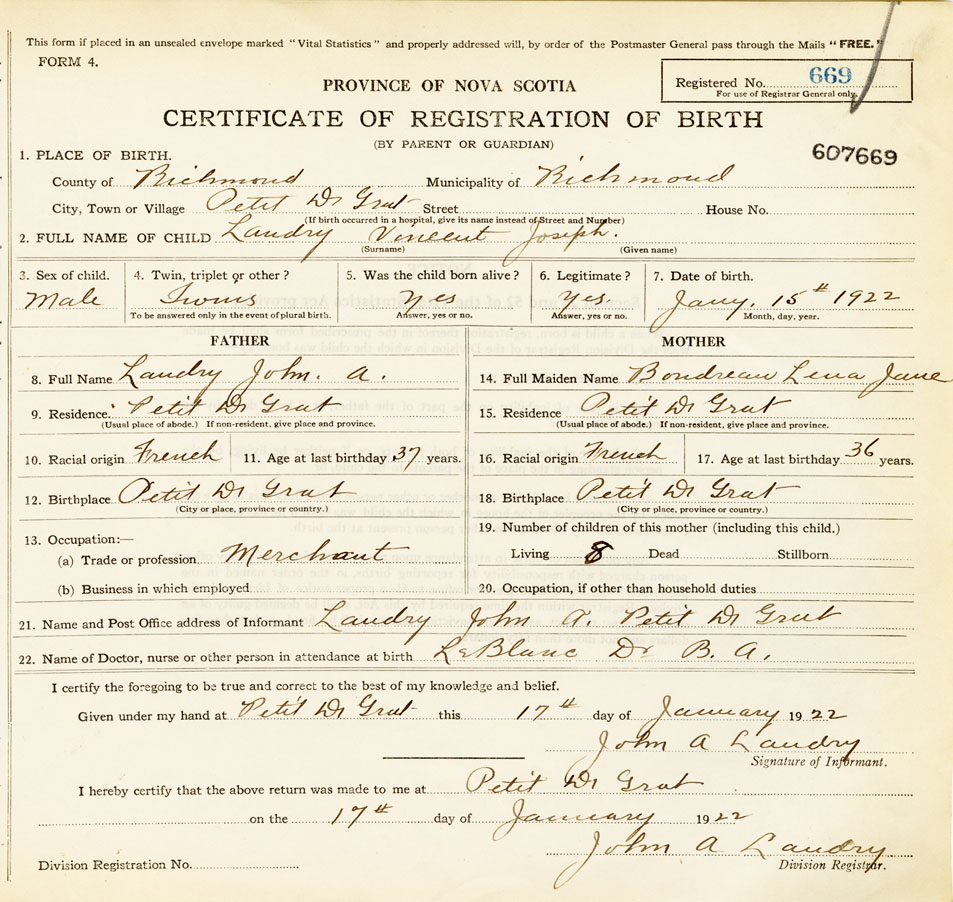 This form if placed in an unsealed envelope marked "Vital Statistics" and properly addressed will, by order of the Postmaster General pass through the Mails "FREE."
FORM 4.
Registered No. 669
For use of Registrar General only.
PROVINCE OF NOVA SCOTIA
CERTIFICATE OF REGISTRATION OF BIRTH
(BY PARENT OR GUARDIAN)
607669
1. PLACE OF BIRTH.
County of Richmond Municipality of Richmond
City, Town or Village Petit De Grat Street House No.
(If birth occurred in a hospital, give its name instead of Street and Number)
2. FULL NAME OF CHILD Landry Vincent Joseph.
(Surname) (Given name)
3. Sex of child. 4. Twin, triplet or other? 5. Was the child born alive? 6. Legitimate? 7. Date of birth.
Male Twins Yes Yes. Jany. 15th 1922
To be answered only in the event of plural birth. Answer, yes or no. Answer, yes or no. Month, day, year.
FATHER
8. Full Name Landry John. A.
9. Residence. Petit De Grat
(Usual place of abode.) If non-resident, give place and province.
10. Racial origin French 11. Age at last birthday 37 years.
12. Birthplace Petit De Grat
(City or place, province or country.)
13. Occupation:—
(a) Trade or profession Merchant
(b) Business in which employed
MOTHER
14. Full Maiden Name Boudreau Lena Jane
15. Residence Petit De Grat
(Usual place of abode.) If non-resident, give place and province.
16. Racial origin French 17. Age at last birthday 36 years.
18. Birthplace Petit De Grat
(City or place, province or country.)
19. Number of children of this mother (including this child.)
Living 8 Dead Stillborn
20. Occupation, if other than household duties
21. Name and Post Office address of Informant Landry John A. Petit De Grat
22. Name of Doctor, nurse or other person in attendance at birth LeBlanc Dr B. A.
I certify the foregoing to be true and correct to the best of my knowledge and belief.
Given under my hand at Petit De Grat this 17th day of January 1922
John A Landry
Signature of Informant.
I hereby certify that the above return was made to me at Petit De Grat
on the 17th day of January 1922
John A Landry
Division Registration No. Division Registrar.